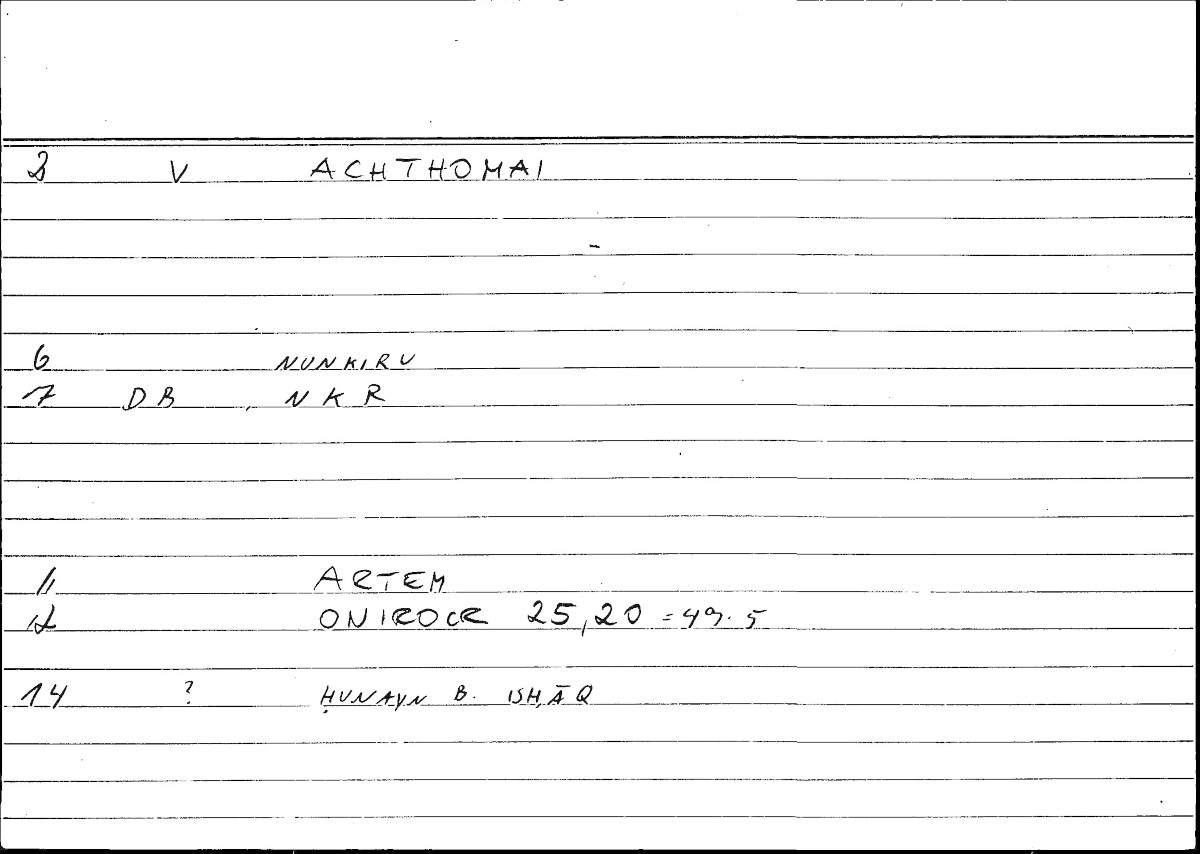 2 V ACHTHOMAI
6 NUNKIRU
7 DB, NKR
11 ARTEM
12 ONIROCR 25,20 = 49.5
14 ? ḤUNAYN B. ISḤĀQ